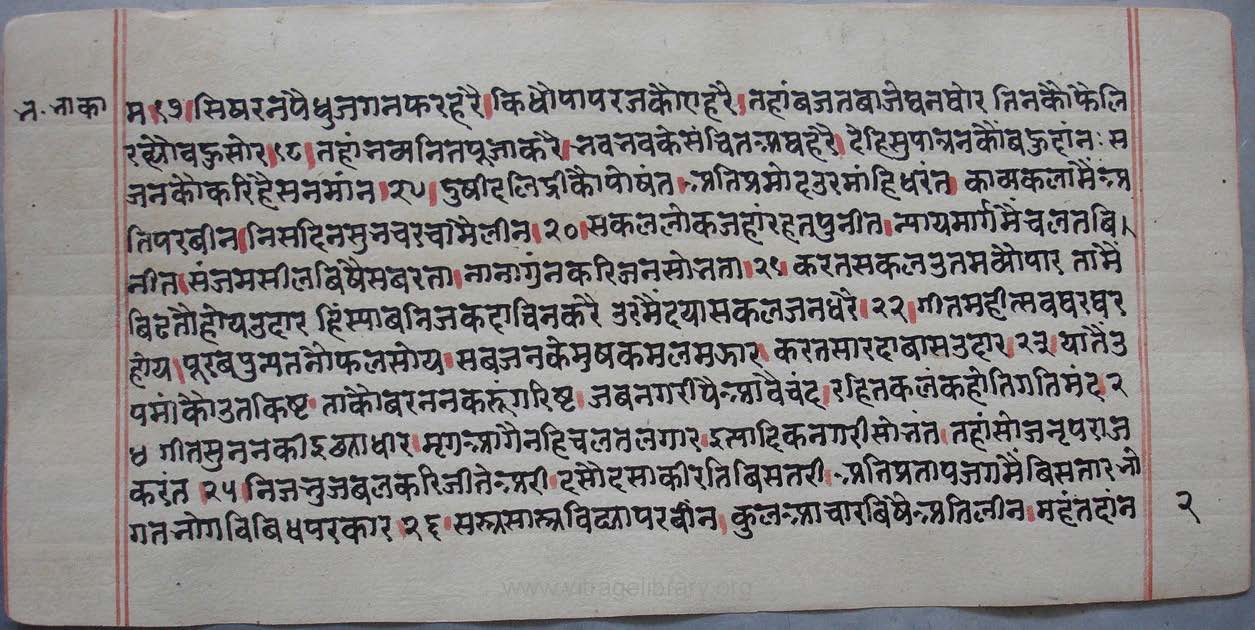 न. नाका
म १७। सिषरनपैधुजगनफरहरै। किधौपापरजकौएहरै। तहांबजतबाजेघनघोर तिनकौफैलि
रह्यौबहुसोर। १८। तहांनव्यनितपूजाकरै। नवनवकेसंचितअघहरै। देहिसुपात्रनकौंबहुदांनः स
जनकौकरिहैसनमांन। १९। दुषीदलिद्रीकौपोषंत। अतिप्रमोदउरमांहिधरंत। काव्यकलामैंअ
तिपरबीन। निसदिनसुनचरचामैलीन। २०। सकललोकजहांरहतपुनीत। न्यायमार्गमैंचलतबि।
नीत। संजमसीलबिषैसबरता। नानागुंनकरिजनसोनता। २१। करतसकलउतमब्यौपार तामैं
बिढतौहोयउदार हिंस्याबनिजकदाचिनकरै उरमैंदयासकलजनधरै। २२। गीतमहोत्सवघरघर
होय। पूरबपुन्यतनौफलसोय। सबजनकेमुषकमलमझार। करतसारदाबासउदार। २३। यातैउ
पमांकौउतकिष्ट। ताकौबरननकरूंगरिष्ट। जबनगरीपैआवैचंद। रहितकलंकहोतिगतिमंद। २
४ गीतसुननकीइछाधार। मृगआगैनहिचलतलगार। इत्यादिकनगरीसोनंत। तहांसोजनृपराज
करंत। २५। निजनुजबलकरिजीतेअरी। दसौदसाकीरतिबिसतरी। अतिप्रतापजगमैंबिसतार नो
गतनोगविबिधपरकार। २६। सस्त्रसास्त्रविद्यापरबीन। कुलआचारबिषैअतिलीन। महंतदांन
२
www.vitragelibrary.org